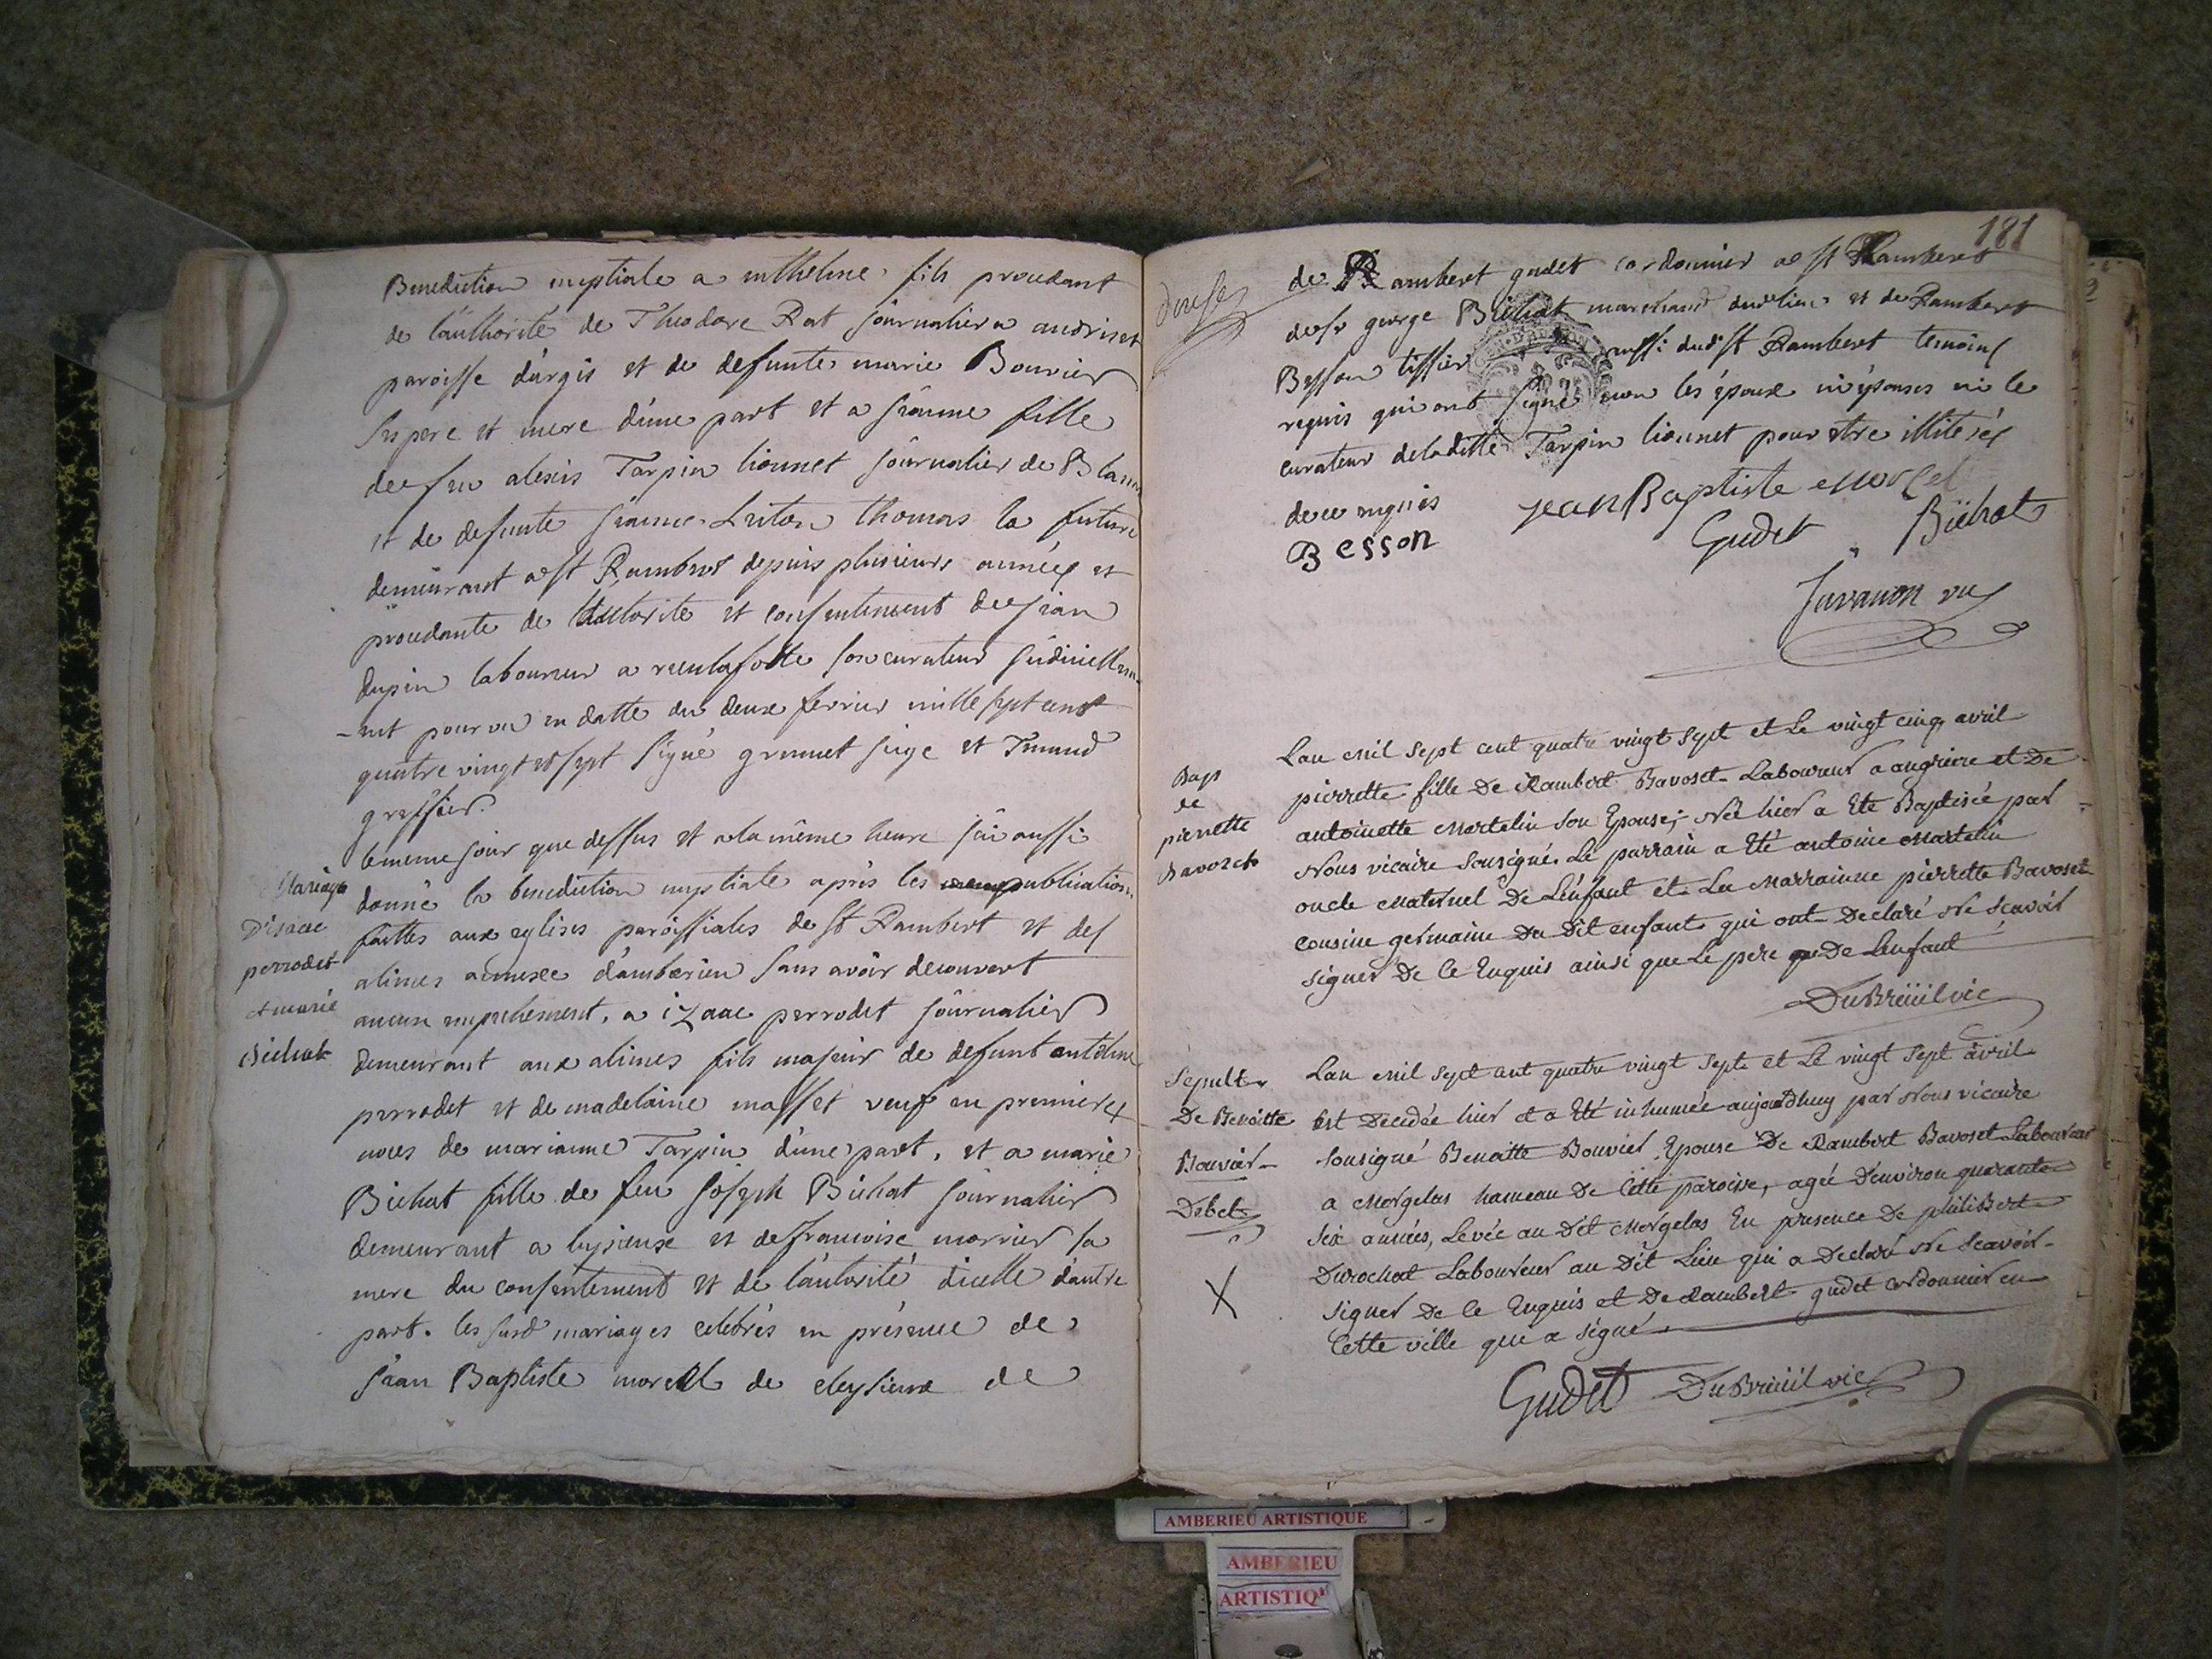 Benediction nuptiale a anthelme fils procedant
de l'authorité de Theodore Rat journalier a andriset
paroisse d'argis et de defunte marie Bouvier
ses pere et mere d'une part et a jeanne fille
de feu alexis Tarpin lionnet journalier de Blana
et de defunte jeanne Thomas la future
demeurant a st Rambert depuis plusieurs années et
procedante de l'autorite et consentement de jean
dupin laboureur a son curateur judiciellem
-ent pourvu en datte du deux fevrier mille sept cent
quatre vingt et sept signé grumet juge et
greffier.
Mariage
D'isaac
perrodet
et marie
Bichat
le meme jour que dessus et a la même heure j'ai aussi
donné la benediction nuptiale après les publications
faittes aux eglises paroissiales de St Rambert et des
alimes annexe d'amberieu sans avoir decouvert
aucun empechement, a izaac perrodet journalier
demeurant aux alimes fils majeur de defunt anthelme
perrodet et de madelaine masset veuf en premieres
noces de marianne Tarpin d'une part, et a marie
Bichat fille de feu joseph Bichat journalier
demeurant a luysieux et de francoise morrier sa
mere du consentement et de l'autorité d'icelle d'autre
part. les susd mariages celebrés en présence de
jean Baptiste morel de cleysieux de
181
douse
de Rambert gudet cordonnier a st Rambert
de sr george Bichat marchand dud lieu et de Rambert
Besson tissier aussi dud st Rambert temoins
requis qui ont signé non les époux ni épouses ni le
curateur de laditte Tarpin lionnet pour etre illiterés
de ce enquis jean Baptiste morel
Besson Gudet Bichat
Juvanon vic
Bap
de
pierrette
Bavoset
Lan mil sept cent quatre vingt sept et Le vingt cinq avril
pierrette fille De Rambert Bavoset Laboureur a angriere et De
antoinette Martelin son Epouse, Née hier a Eté Baptisée par
Nous vicaire sousigné. Le parrain a Eté antoine Martelin
oncle Maternel De L'enfant et La Marrainne pierrette Bavoset
cousine germaine Du Dit enfant qui ont Declaré Ne scavoir
signer De Ce Enquis ainsi que Le pere De Lenfant
DuBreüil vic
Sepult.
De Benoitte
Bouvier
Debet
X
Lan mil sept cent quatre vingt sept et Le vingt sept avril
Est Decedée hier et a Eté inhumée aujourdhuy par Nous vicaire
sousigné Benoitte Bouvier Epouse De Rambert Bavoset Laboureur
a Morgelas hameau De Cette paroisse, agée D'environ quarante
six années, Levée au Dit Morgelas En presence De philibert
Durochat Laboureur au Dit Lieu qui a Declaré Ne Scavoir
signer De Ce Enquis et De Rambert gudet cordonnier en
Cette ville qui a signé.
Gudet DuBreüil vic
AMBERIEU ARTISTIQUE
AMBERIEU
ARTISTIQ